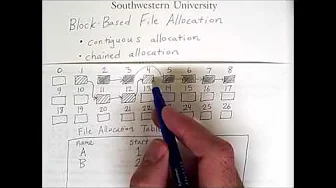 Southwestern University
Block-Based File Allocation
• contiguous allocation
• chained allocation
0 1 2 3 4 5 6 7 8
9 10 11 12 13 14 15 16 17
18 19 20 21 22 24 25 26
File Allocation Table
Name Start
A 1
B 2